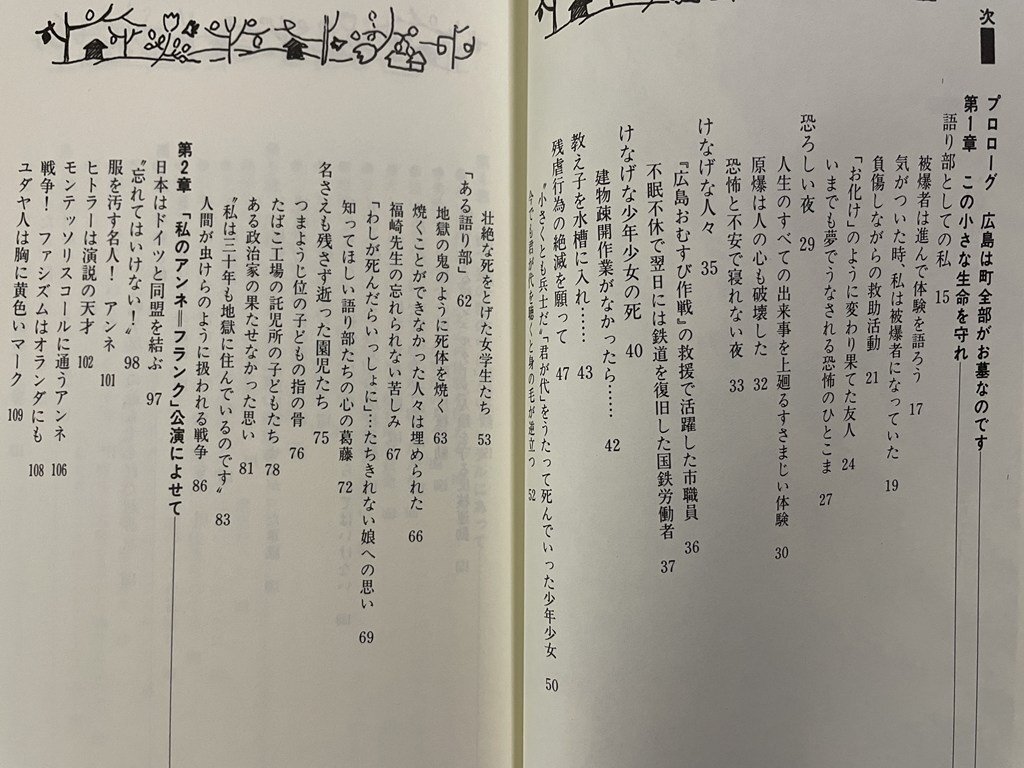 次
プロローグ 広島は町全部がお墓なのです
第1章 この小さな生命を守れ
語り部としての私 15
被爆者は進んで体験を語ろう 17
気がついた時、私は被爆者になっていた 19
負傷しながらの救助活動 21
「お化け」のように変わり果てた友人 24
いまでも夢でうなされる恐怖のひとこま 27
恐ろしい夜 29
人生のすべての出来事を上廻るすさまじい体験 30
原爆は人の心も破壊した 32
恐怖と不安で寝れない夜 33
けなげな人々 35
『広島おむすび作戦』の救援で活躍した市職員 36
不眠不休で翌日には鉄道を復旧した国鉄労働者 37
けなげな少年少女の死 40
建物疎開作業がなかったら…… 42
教え子を水槽に入れ…… 43
残虐行為の絶滅を願って 47
“小さくとも兵士だ”「君が代」をうたって死んでいった少年少女 50
今でも君が代を聴くと身の毛が逆立つ 52
壮絶な死をとげた女学生たち 53
「ある語り部」 62
地獄の鬼のように死体を焼く 63
焼くことができなかった人々は埋められた 66
福崎先生の忘れられない苦しみ 67
「わしが死んだらいっしょに」…たちきれない娘への思い 69
知ってほしい語り部たちの心の葛藤 72
名さえも残さず逝った園児たち 75
つまようじ位の子どもの指の骨 76
たばこ工場の託児所の子どもたち 78
ある政治家の果たせなかった思い 81
“私は三十年も地獄に住んでいるのです” 83
人間が虫けらのように扱われる戦争 86
第2章 「私のアンネ＝フランク」公演によせて
日本はドイツと同盟を結ぶ 97
“忘れてはいけない！” 98
服を汚す名人！ アンネ 101
ヒトラーは演説の天才 102
モンテッソリスコールに通うアンネ 106
戦争！ ファシズムはオランダにも 108
ユダヤ人は胸に黄色いマーク 109